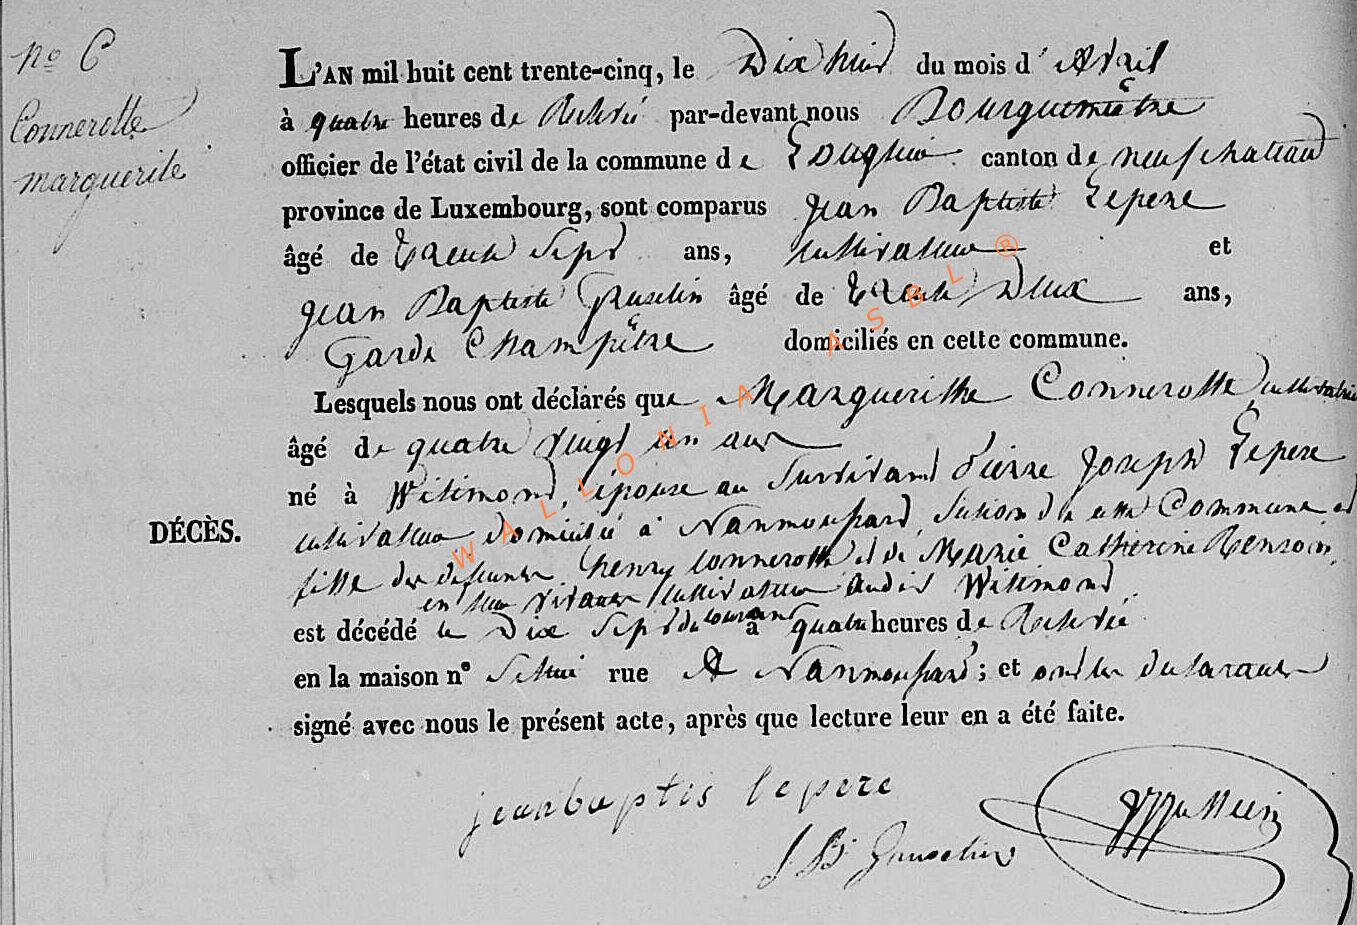 no 6
Connerotte
marguerite
L'AN mil huit cent trente-cinq, le Dix huit du mois d'Avril
à quatre heures de Relevée par-devant nous Bourguemêtre
officier de l'état civil de la commune de Longlier canton de neufchateau
province de Luxembourg, sont comparus Jean Baptiste Lepere
âgé de Trente Sept ans, cultivateur et
Jean Baptiste âgé de Trente Deux ans,
Garde Champêtre domiciliés en cette commune.
Lesquels nous ont déclarés que Marguerithe Connerotte cultivatrice
âgé de quatre vingt un ans
né à Witimont, épouse au Survivant Pierre Joseph Lepere
cultivateur Domicilié à Nanmoupard Section de cette Commune et
fille des defunts henry Connerotte et de Marie Catherine Renson
en leur vivant cultivateur audit Witimont
est décédé le Dix Sept du courant à quatre heures de Relevée
en la maison n° Sept rue A Nanmoupard; et ont les Declarants
DÉCÈS.
signé avec nous le présent acte, après que lecture leur en a été faite.
jeanbaptis lepere
J Bt
WALLONIA ASBL ®